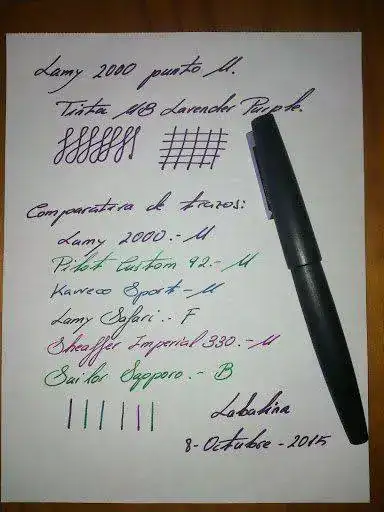 Lamy 2000 punto M.
Tinta MB Lavender Purple.
Comparativa de trazos:
Lamy 2000.- M
Pilot Custom 92.- M
Kaweco Sport.- M
Lamy Safari.- F
Sheaffer Imperial 330.- M
Sailor Sapporo.- B
Labalina
8-Octubre-2015